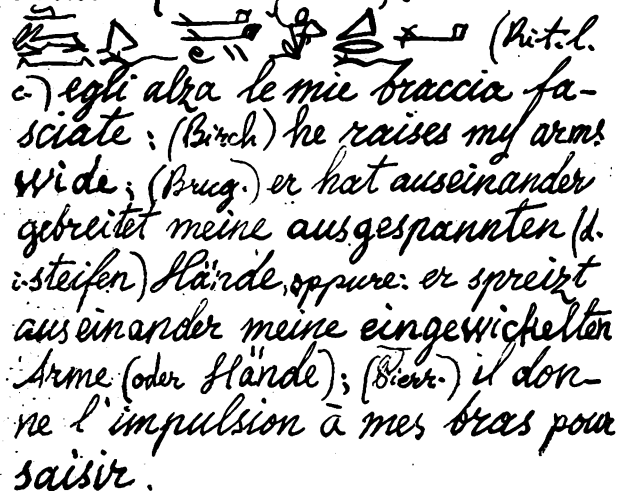 (Rit. l.
c.) egli alza le mie braccia fa-
sciate; (Birch) he raises my arms
wide; (Brug.) er hat auseinander
gebreitet meine ausgespannten (d.
i. steifen) Hände, oppure: er spreizt
auseinander meine eingewickelten
Arme (oder Hände); (Pierr.) il don-
ne l'impulsion à mes bras pour
saisir.